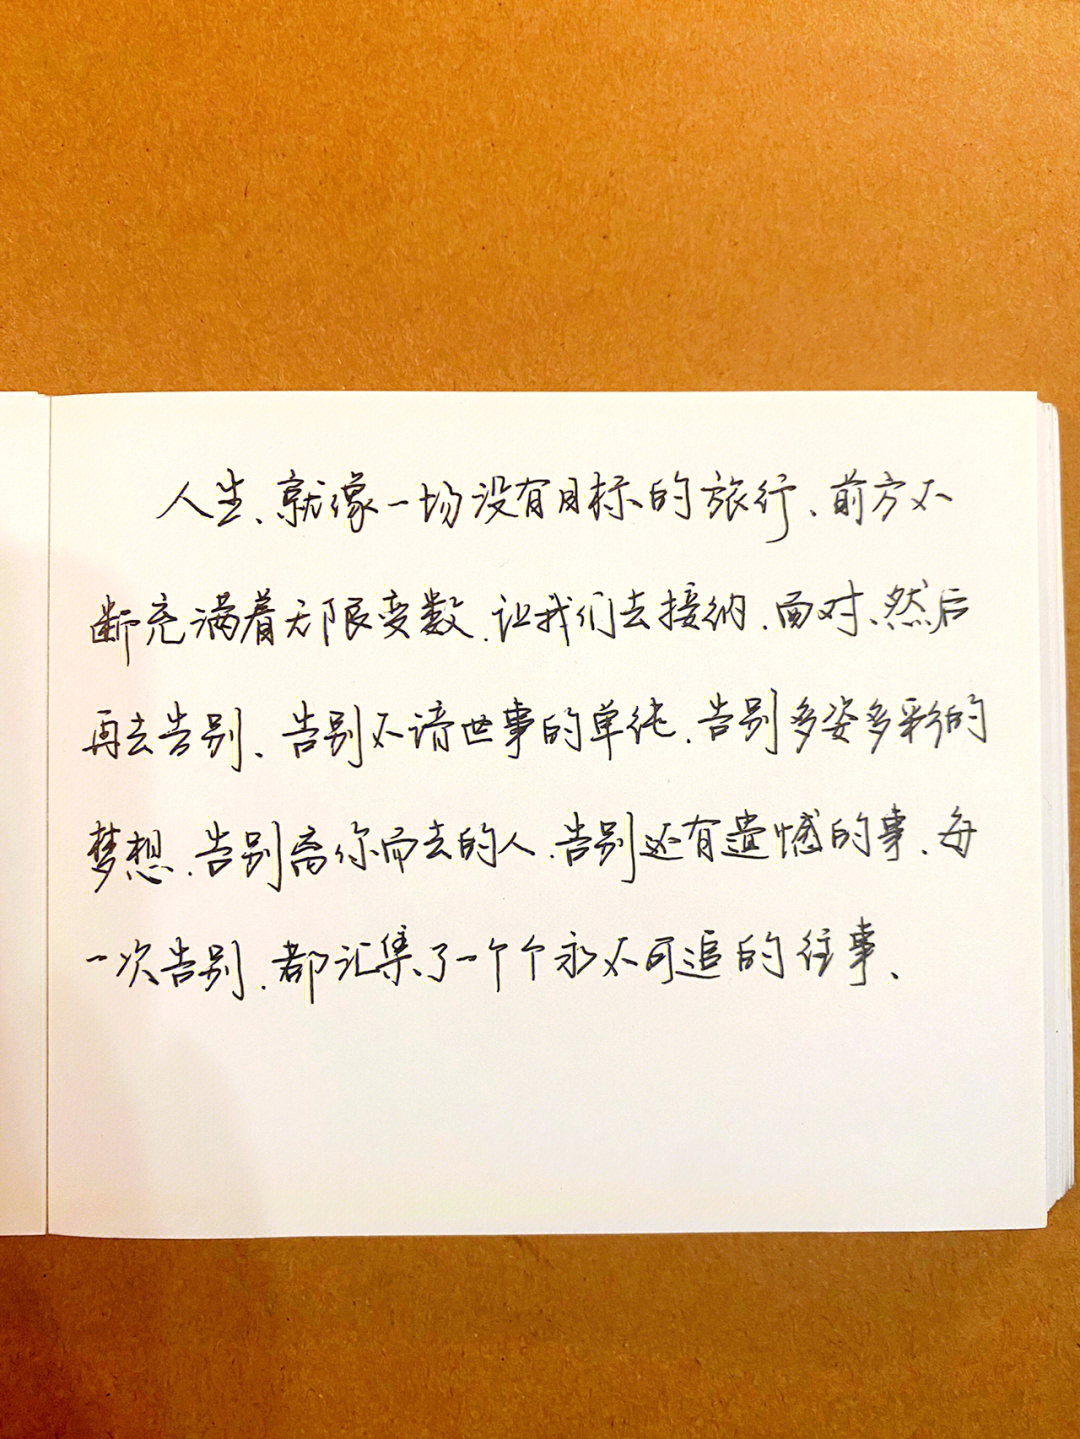 人生、就像一场没有目标的旅行、前方不
断充满着无限变数、让我们去接纳、面对、然后
再去告别、告别不谙世事的单纯、告别多姿多彩的
梦想、告别离你而去的人、告别还有遗憾的事、每
一次告别、都汇集了一个个永不可追的往事、